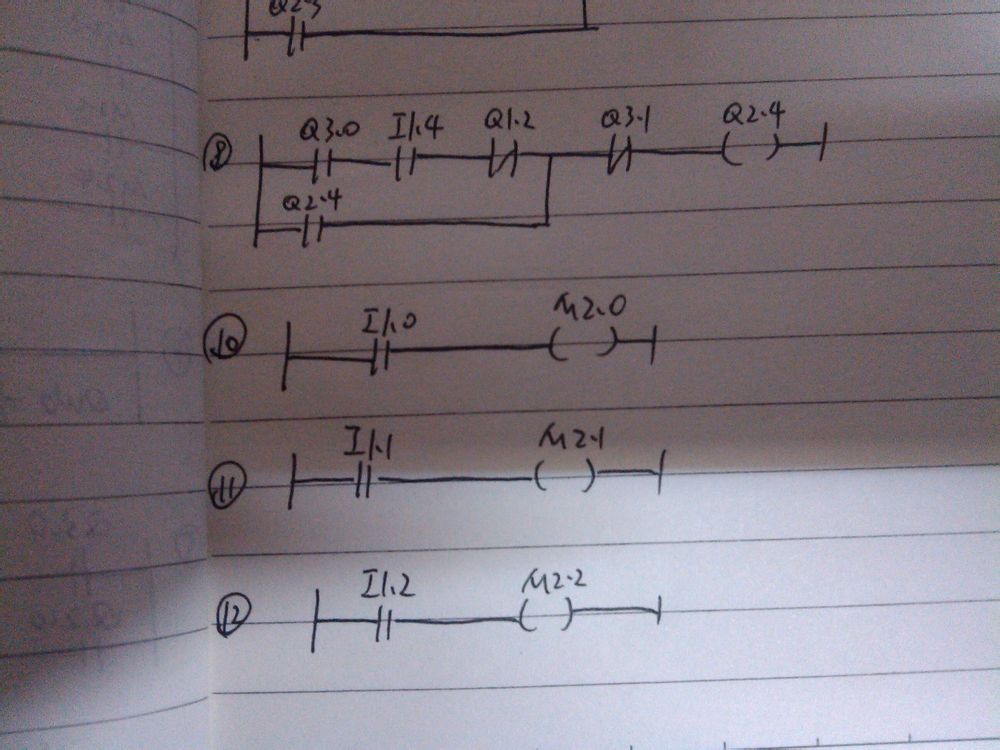 Q2.3
⑧ Q3.0 I1.4 Q1.2 Q3.1 Q2.4
Q2.4
⑩ I1.0 M2.0
⑪ I1.1 M2.1
⑫ I1.2 M2.2